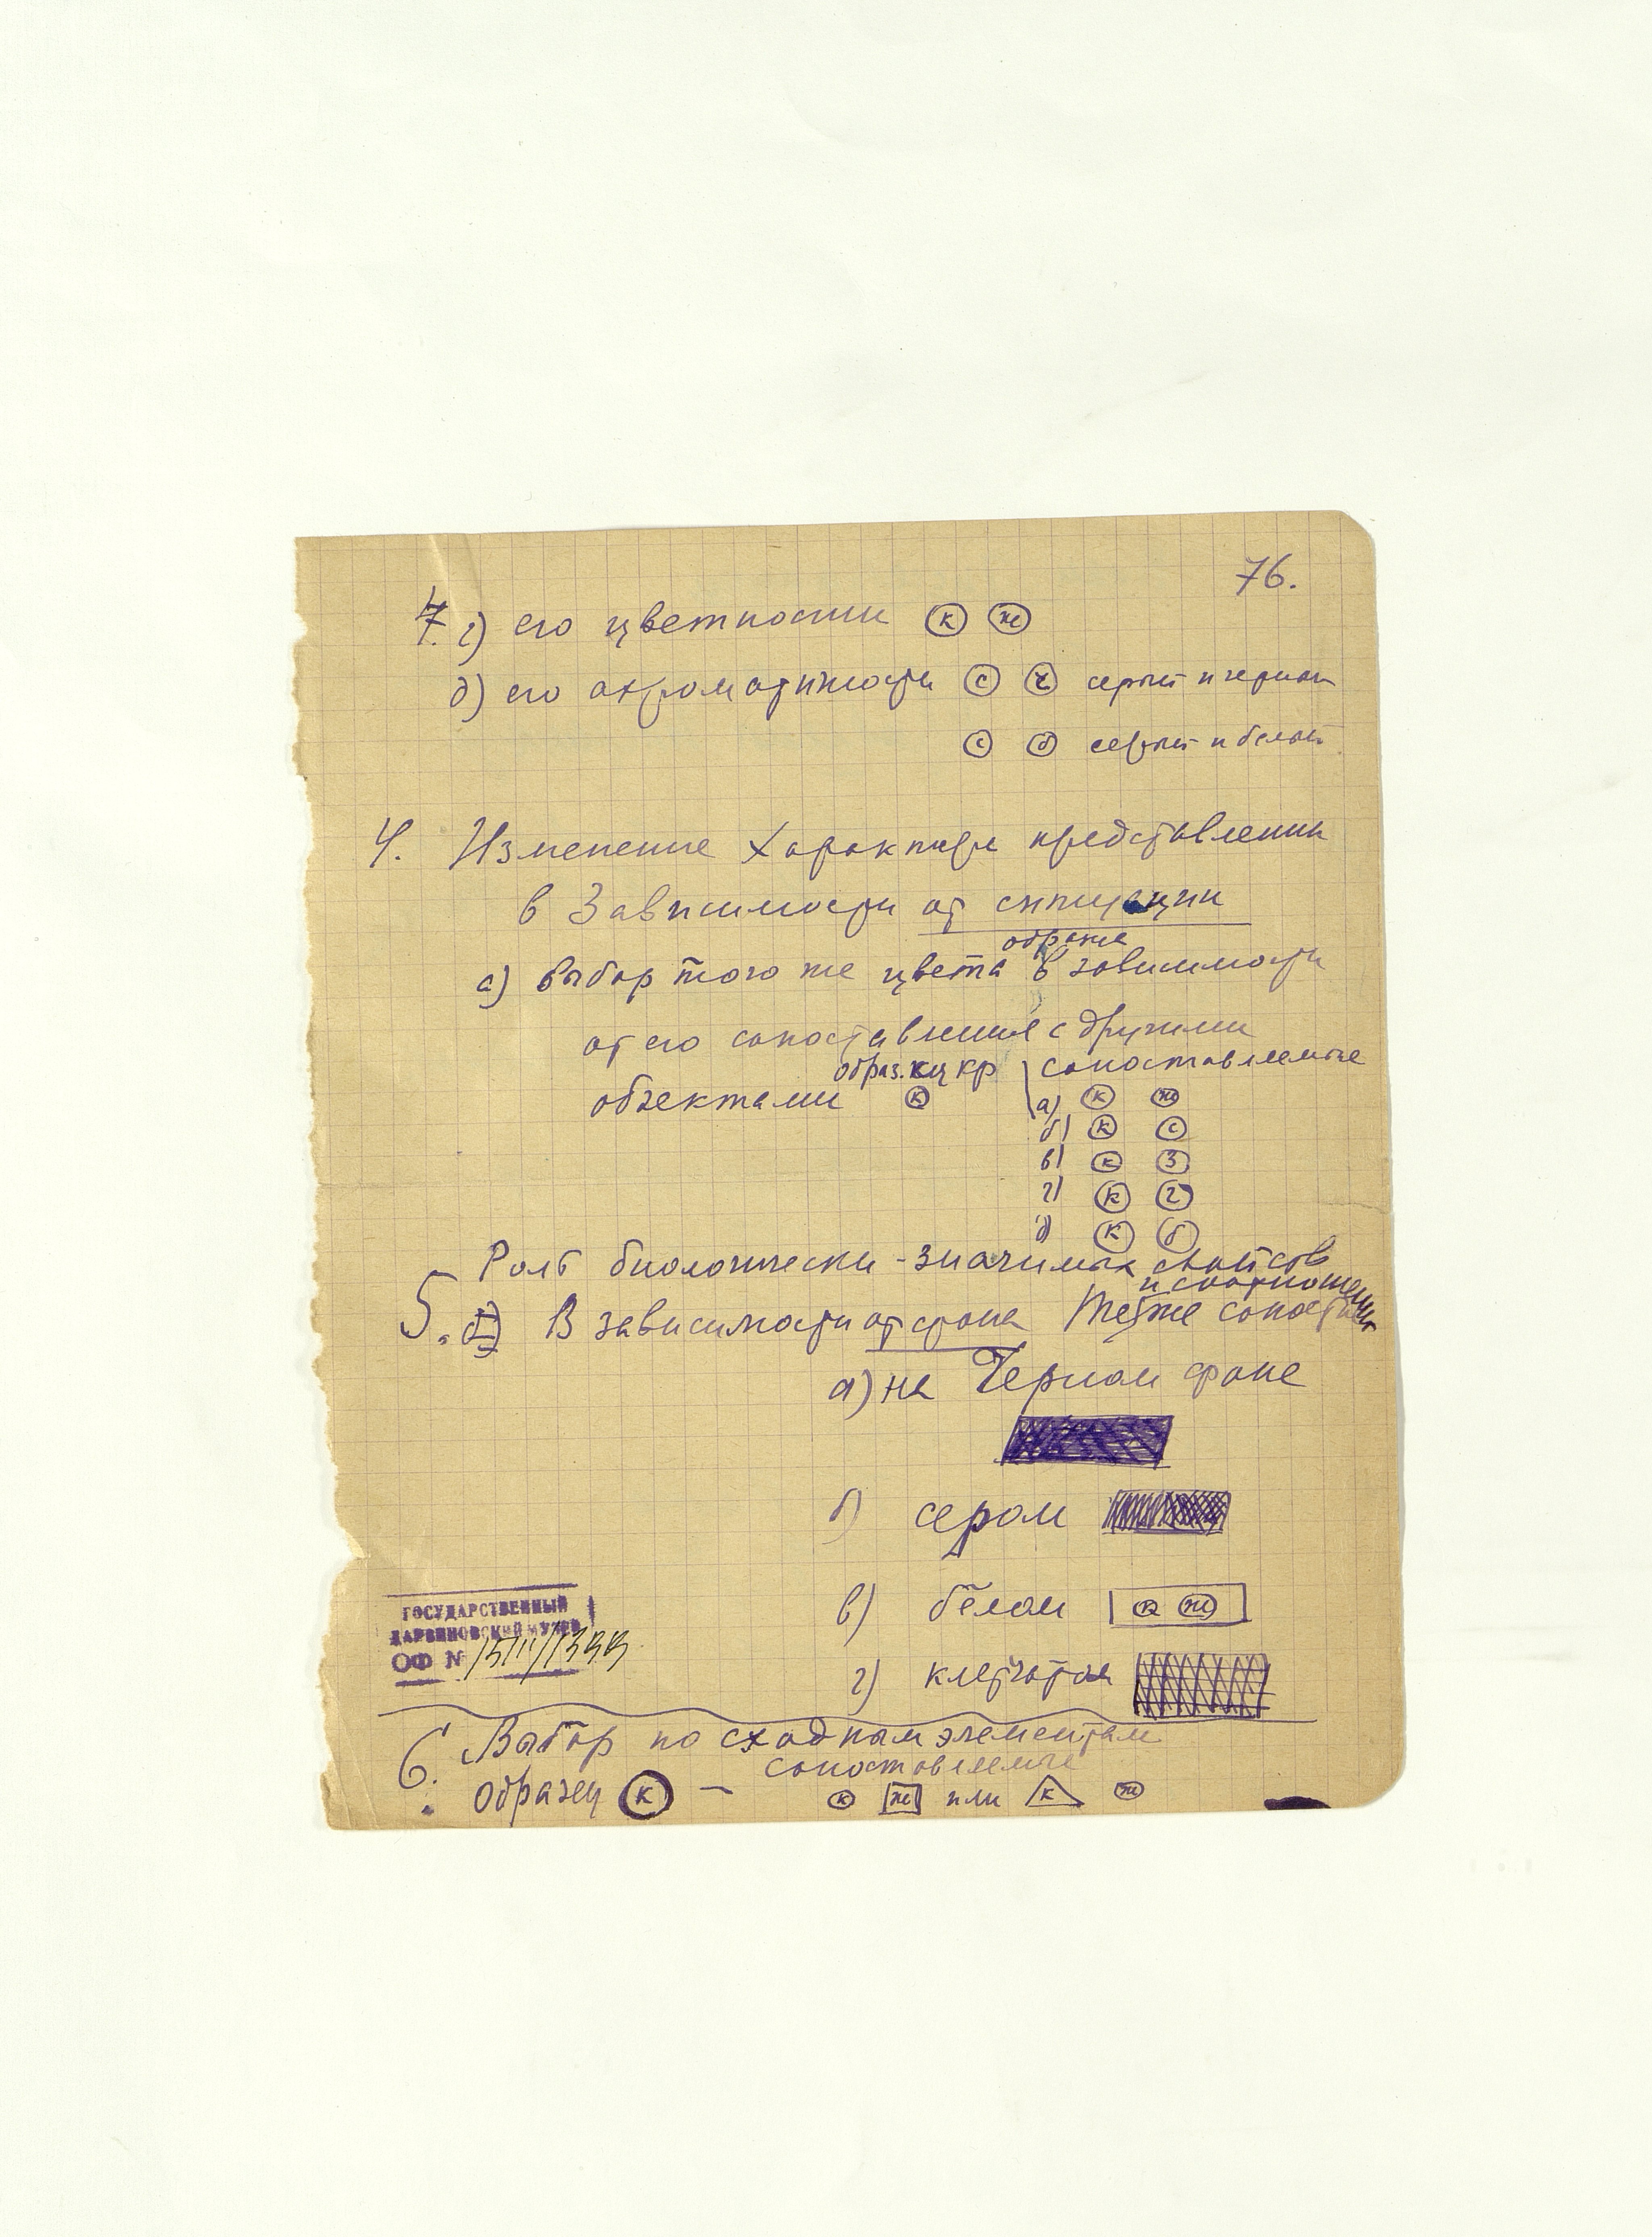 76.
7. г) его цветности к ж
д) его ахроматичности с ч серый и черный
с б серый и белый
4. Изменение характера представления
в зависимости от ситуации
а) выбор того же цвета в зависимости
от его сопоставления с другими
образ. кр сопоставляемые
объектами к а) к ж
б) к с
в) к з
г) к г
д) к б
Роль биологически-значимых свойств
5. В зависимости от фона Те же сопост
а) на Черном фоне
б) сером
в) белом к ж
г) клетчатом
ГОСУДАРСТВЕННЫЙ
ДАРВИНОВСКИЙ МУЗЕЙ
ОФ №
6. Выбор по сходным элементам
сопоставляемые
образец к – к ж или к ж